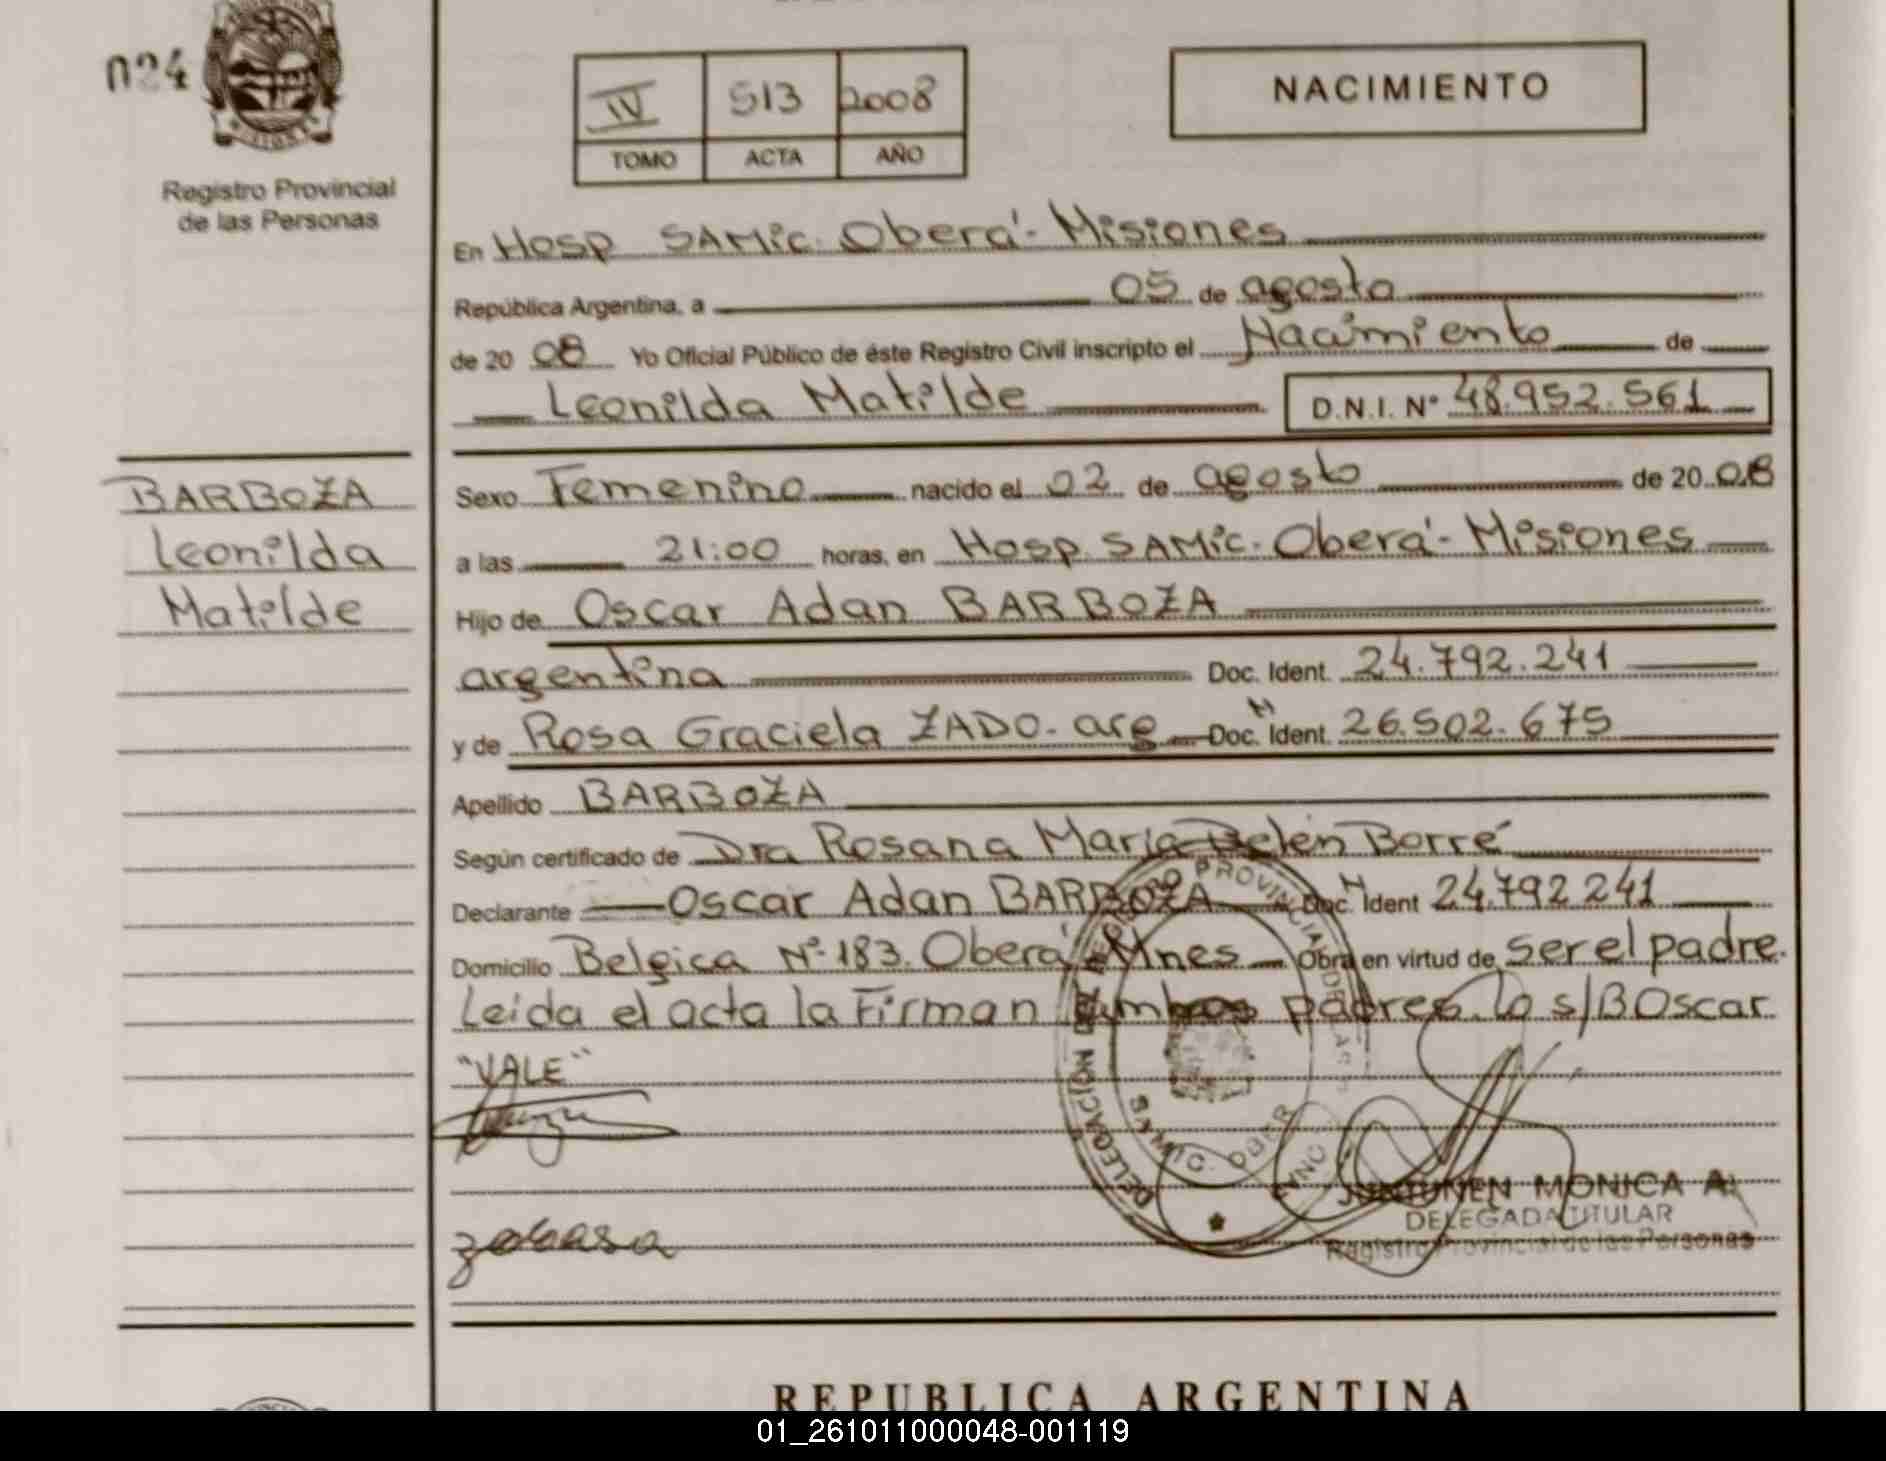 024
Registro Provincial
de las Personas
IV 513 2008
TOMO ACTA AÑO
NACIMIENTO
En Hosp SAMic. Oberá - Misiones
República Argentina, a 05 de agosto
de 20 08 Yo Oficial Público de éste Registro Civil inscripto el Nacimiento de
Leonilda Matilde D.N.I. Nº 48.952.561
BARBOZA
Leonilda
Matilde
Sexo Femenino nacido el 02 de agosto de 20 08
a las 21:00 horas, en Hosp. SAMic. Oberá - Misiones
Hijo de Oscar Adan BARBOZA
argentina Doc. Ident. 24.792.241
y de Rosa Graciela ZADO. arg Doc. N Ident. 26.502.675
Apellido BARBOZA
Según certificado de Dra Rosana María Belén Borré
Declarante Oscar Adan BARBOZA Doc. N Ident 24.792 241
Domicilio Belgica Nº 183. Oberá Mnes Obra en virtud de ser el padre.
Leida el acta la Firman ambos padres. lo s/B Oscar
"VALE"
DELEGACION PROVINCIAL DE LAS
SAMIC. OBERA
JUNTUNEN MONICA A.
DELEGADA TITULAR
Registro Provincial de las Personas
REPUBLICA ARGENTINA
01_261011000048-001119